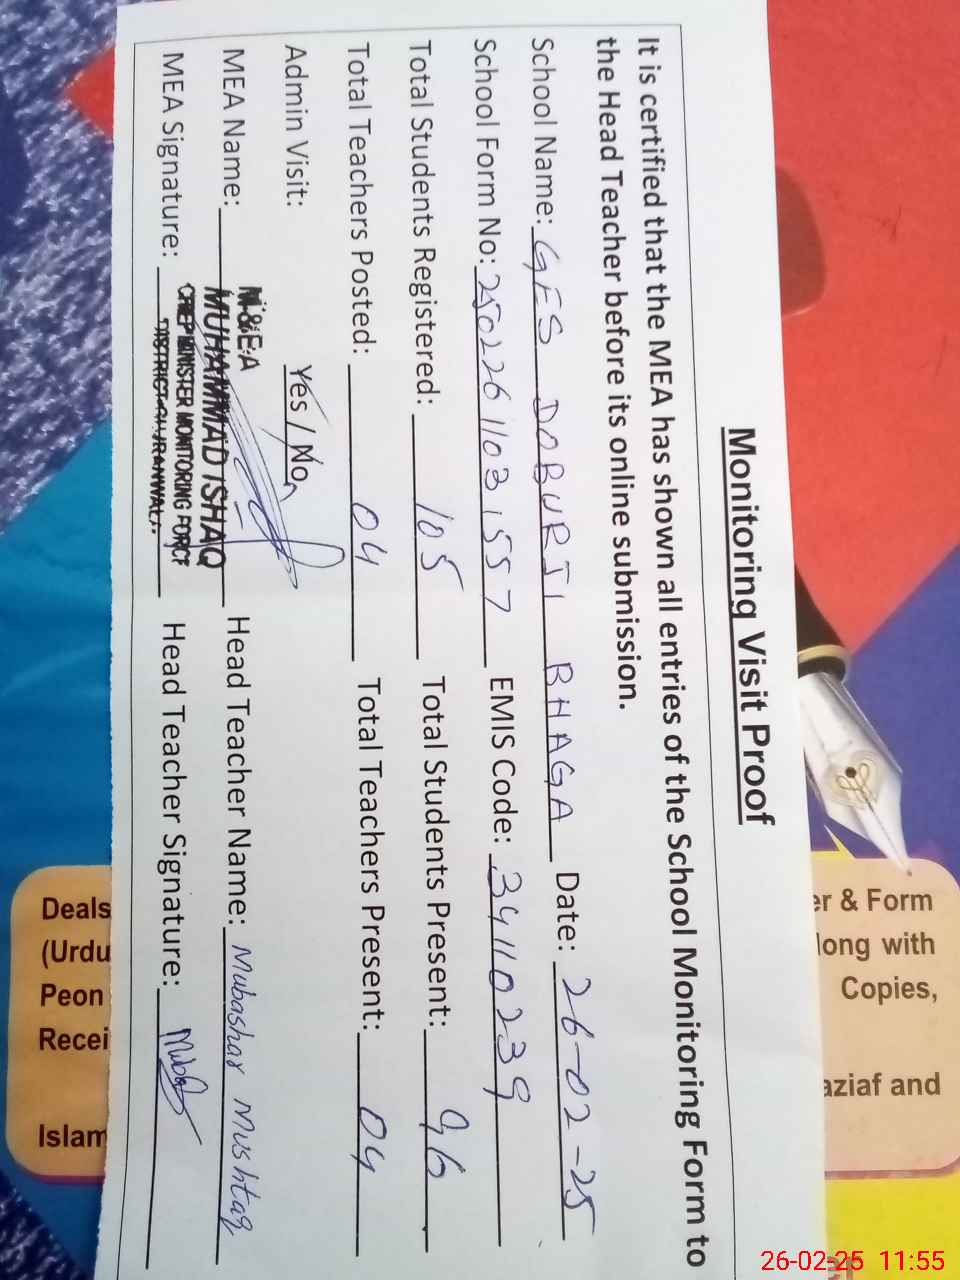 Monitoring Visit Proof
It is certified that the MEA has shown all entries of the School Monitoring Form to
the Head Teacher before its online submission.
School Name: GES DOBURJI BHAGA Date: 26-02-25
School Form No: 2502261103,557 EMIS Code: 34110239
Total Students Registered: 105 Total Students Present: 96
Total Teachers Posted: 04 Total Teachers Present: 04
Admin Visit: Yes / No
M.&E.A
MEA Name: MUHAMMAD ISHAQ Head Teacher Name: Mubashar Mushtaq
MEA Signature: CHIEF MINISTER MONITORING FORCE Head Teacher Signature:
DISTRICT GUJRANWALA
Deals
(Urdu
Peon
Recei
Islam
er & Form
long with
Copies,
aziaf and
26-02-25 11:55